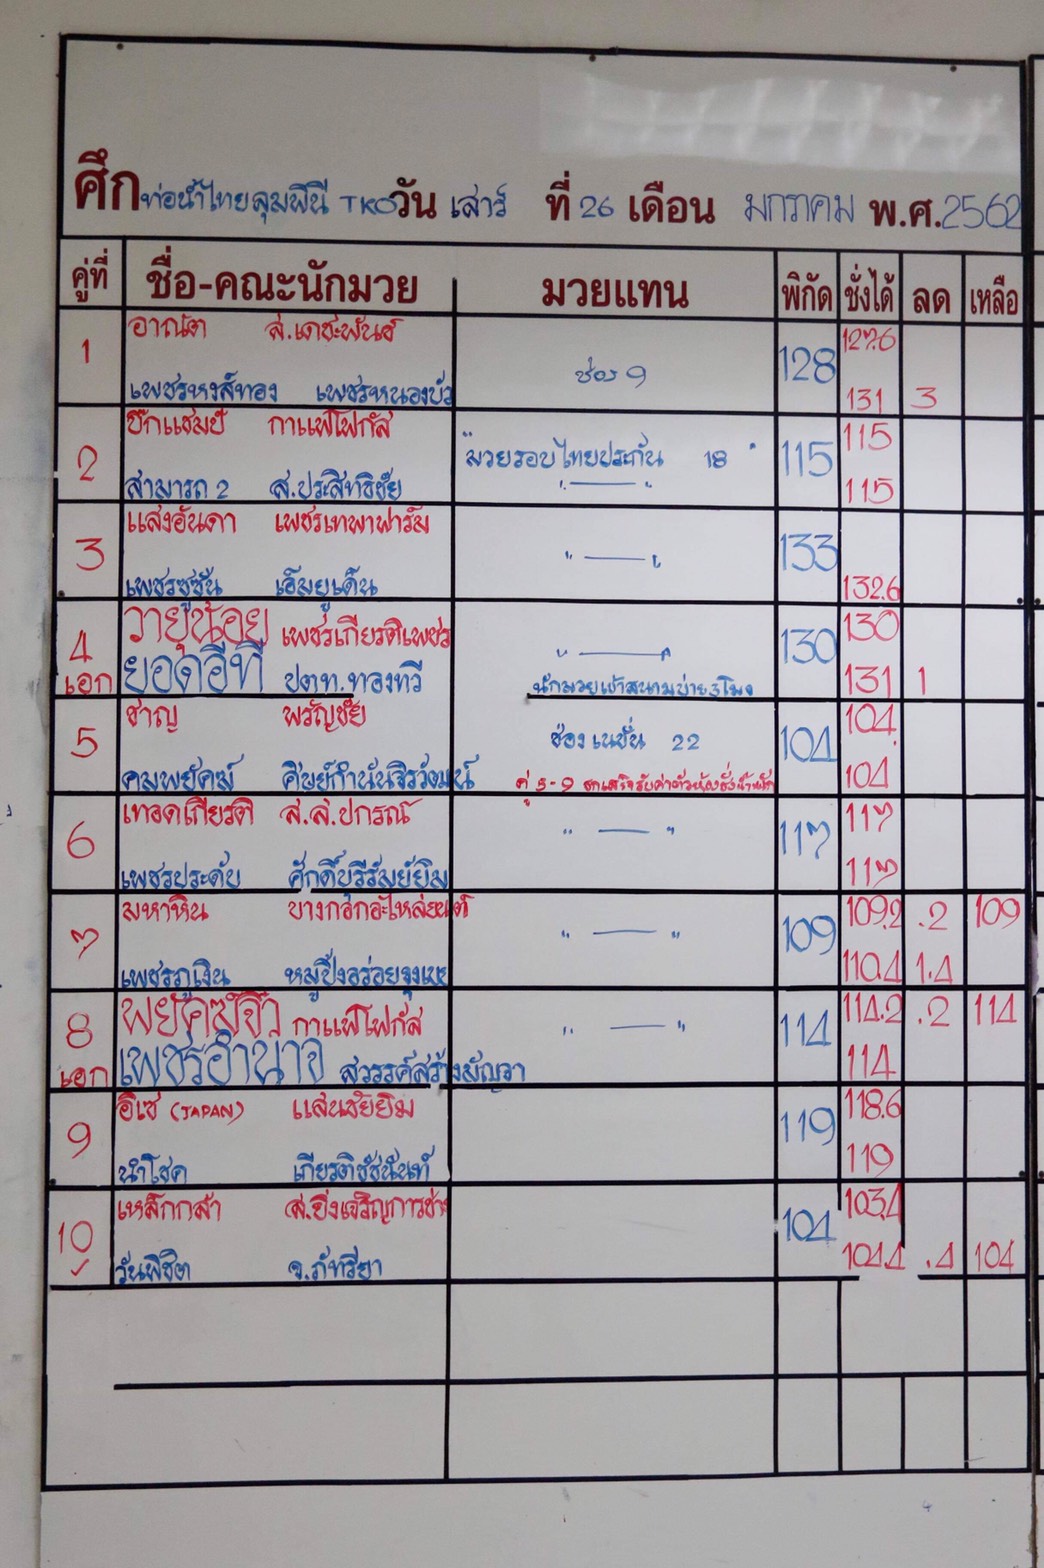 ศึก ท่อน้ำไทยลุมพินี TKO วัน เสาร์ ที่ 26 เดือน มกราคม พ.ศ. 2562
คู่ที่ ชื่อ-คณะนักมวย มวยแทน พิกัด ชั่งได้ ลด เหลือ
อาณัต ส.เดชะพันธ์ 127.6
1 ช่อง 9 128
เพชรหงส์ทอง เพชรหนองบัว 131 3
บิ๊กแชมป์ กาแฟโฟกัส 115
2 "มวยรอบไทยประกัน 18" 115
สามารถ 2 ส.ประสิทธิชัย " — " 115
แสงอันดา เพชรเทพาฟาร์ม
3 " — " 133
เพชรซูซัน เอ็มยูเด็น 132.6
วายุน้อย เพชรเกียรติเพชร 130
4 " — " 130
เอก ยอดอีที ปตท.ทองทวี นักมวยเข้าสนามบ่าย 3 โมง 131 1
ชาญ พรัญชัย 104
5 ช่องเนชั่น 22 104
คมพยัคฆ์ ศิษย์กำนันจิรวัฒน์ คู่ 5-9 104
เทอดเกียรติ ส.ส.ปกรณ์ 117
6 " — " 117
เพชรประดับ ศักดิ์บุรีรัมย์ยิม 117
มหาหิน บางกอกอะไหล่ยนต์ 109.2 .2 109
7 " — " 109
เพชรภูเงิน หมูปิ้งอร่อยจุงเบย 110.4 1.4
พยัคฆ์จิ๋ว กาแฟโฟกัส 114.2 .2 114
8 " — " 114
เอก เพชรอำนาจ สวรรค์สร้างปัญจา 114
อิเซ (JAPAN) แสนชัยยิม 118.6
9 119
นำโชค เกียรติชัชนันท์ 119
เหล็กกล้า ส.ยิ่งเจริญการช่าง 103.4
10 104
วันพิชิต จ.ภัทรียา 104.4 .4 104